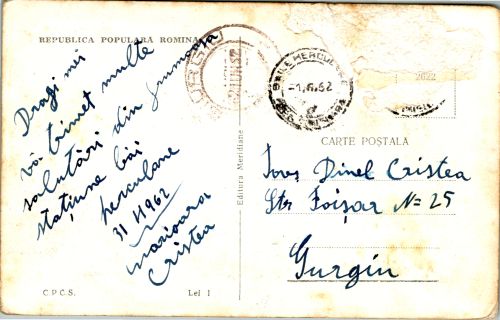 REPUBLICA POPULARA ROMINA
Dragi mei
vă trimet multe
salutări din frumoasa
stațiune băi
herculane
31 VI 1962
Marioara
Cristea
C.P.C.S.
Lei 1
Editura Meridiane
BAILE HERCULANE
-1.6.62
2022
CARTE POSTALA
Dinel Cristea
Str Foișor N= 25
Gurgiu